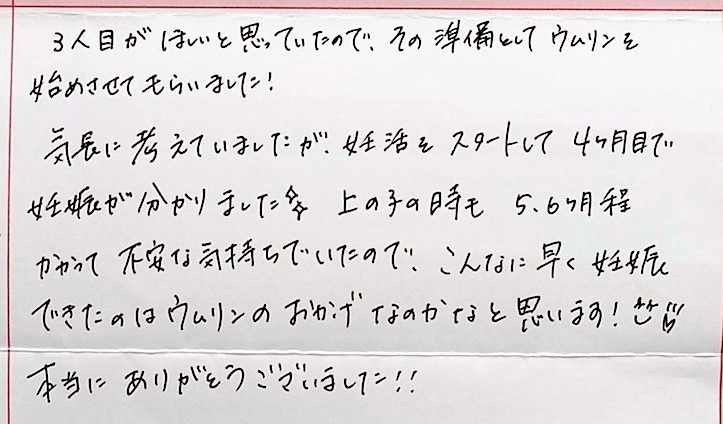 3人目がほしいと思っていたので、その準備としてウムリンを
始めさせてもらいました!
気長に考えていましたが、妊活をスタートして4ヶ月目で
妊娠が分かりました✨ 上の子の時も 5.6ヶ月程
かかって不安な気持ちでいたので、こんなに早く妊娠
できたのはウムリンのおかげなのかなと思います!
本当にありがとうございました!!